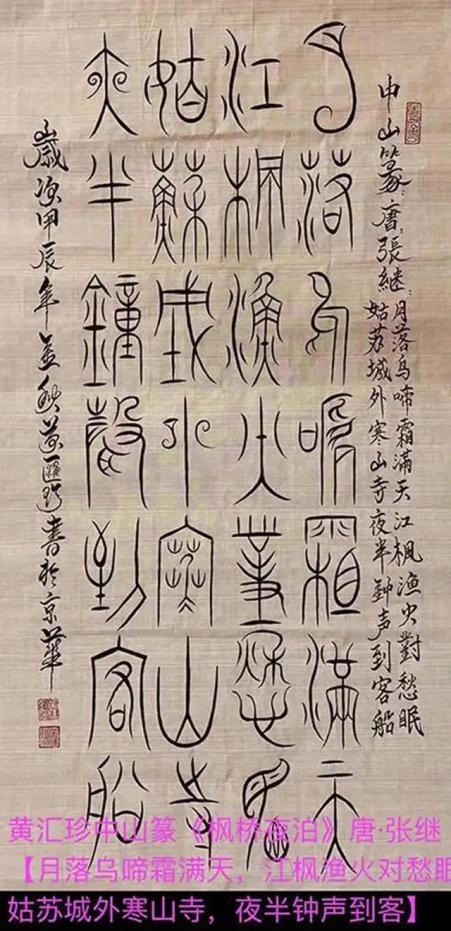 中山篆：唐，張継：月落乌啼霜滿天江枫渔火對愁眠
姑苏城外寒山寺夜半钟声到客船
月落烏嗁霜滿天
江楓漁火對愁眠
姑蘇城外寒山寺
夜半鐘聲到客船
歲次甲辰年秋黄匯珍書於京華
黄汇珍中山篆《枫桥夜泊》唐·张继
【月落乌啼霜满天，江枫渔火对愁眠
姑苏城外寒山寺，夜半钟声到客】